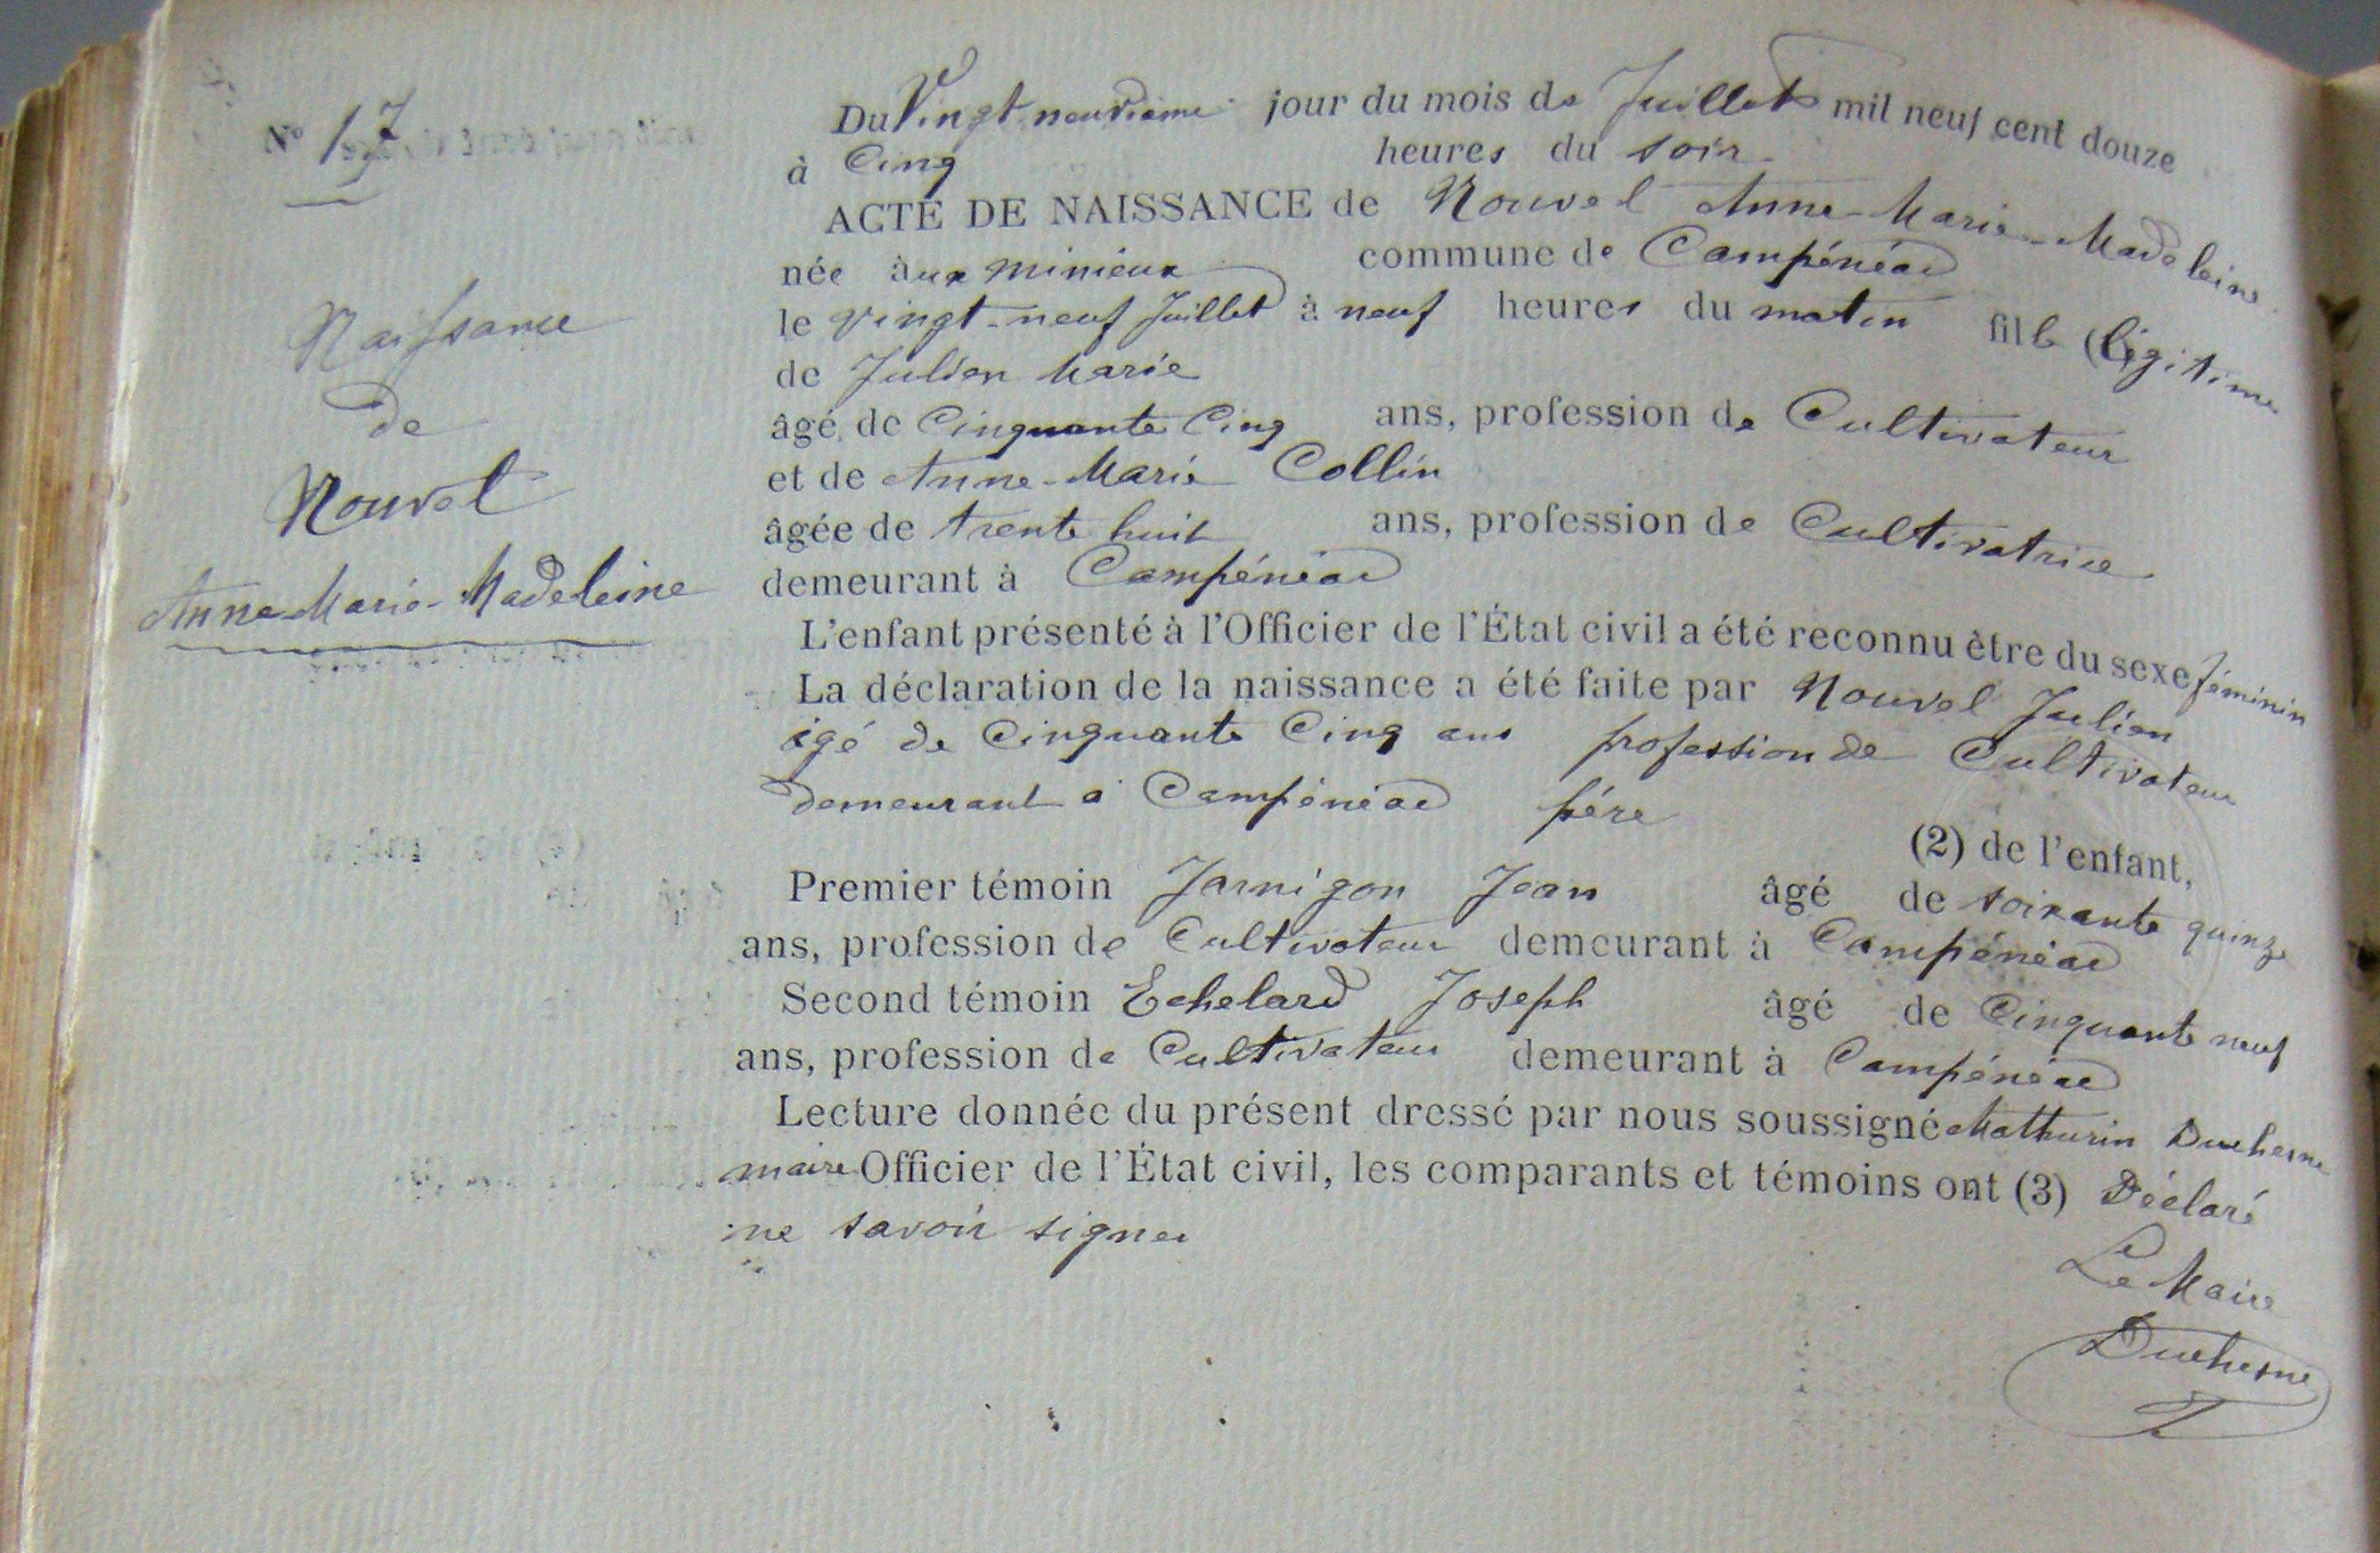 N° 17
Naissance
de
Nouvel
Anne-Marie-Madeleine
Du Vingt neuvième jour du mois de Juillet mil neuf cent douze
à Cinq heures du soir
ACTE DE NAISSANCE de Nouvel Anne-Marie-Madeleine
née aux minieux commune de Campénéac
le vingt-neuf Juillet à neuf heures du matin fille (légitime
de Julien Marie
âgé de Cinquante Cinq ans, profession de Cultivateur
et de Anne-Marie Collin
âgée de trente huit ans, profession de Cultivatrice
demeurant à Campénéac
L'enfant présenté à l'Officier de l'État civil a été reconnu être du sexe féminin
La déclaration de la naissance a été faite par Nouvel Julien
âgé de Cinquante Cinq ans profession de Cultivateur
demeurant à Campénéac père
(2) de l'enfant,
Premier témoin Jarnigon Jean âgé de soixante quinze
ans, profession de Cultivateur demeurant à Campénéac
Second témoin Echelard Joseph âgé de Cinquante neuf
ans, profession de Cultivateur demeurant à Campénéac
Lecture donnée du présent dressé par nous soussigné Mathurin Duchesne
maire Officier de l'État civil, les comparants et témoins ont (3) Déclaré
ne savoir signer
Le Maire
Duchesne